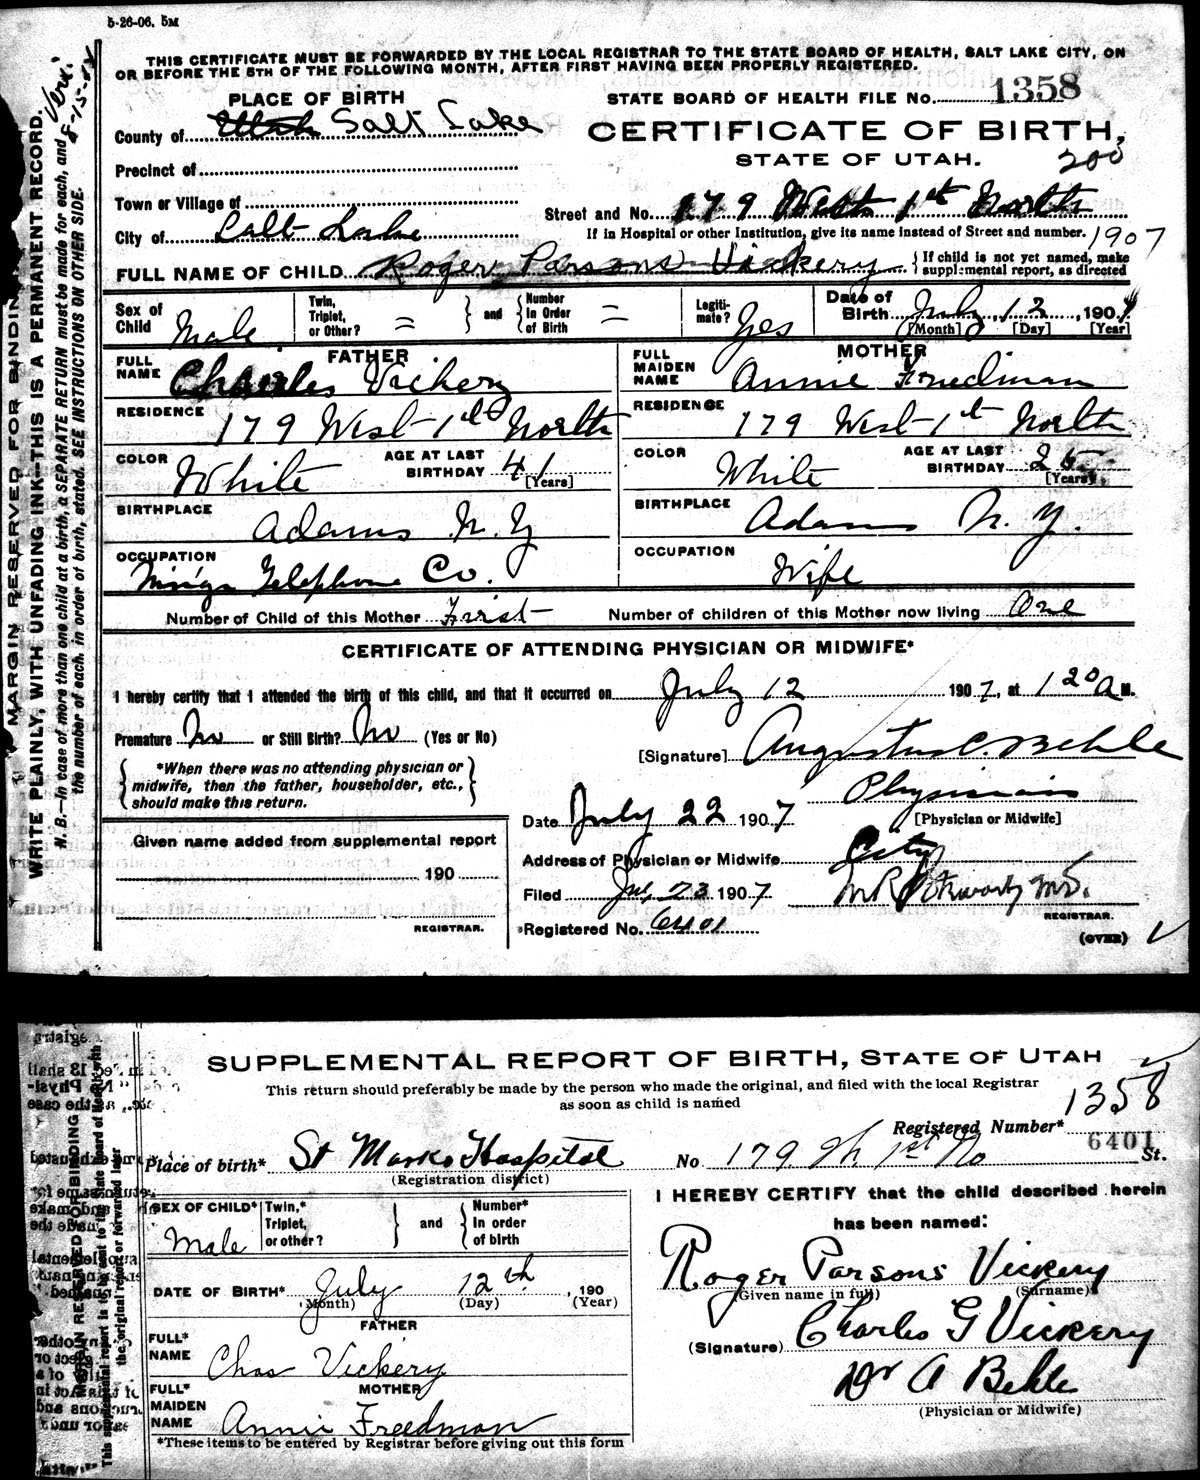 5-26-06. 5M
THIS CERTIFICATE MUST BE FORWARDED BY THE LOCAL REGISTRAR TO THE STATE BOARD OF HEALTH, SALT LAKE CITY, ON
OR BEFORE THE 5TH OF THE FOLLOWING MONTH, AFTER FIRST HAVING BEEN PROPERLY REGISTERED.
MARGIN RESERVED FOR BINDING
WRITE PLAINLY, WITH UNFADING INK—THIS IS A PERMANENT RECORD.
N. B.—In case of more than one child at a birth, a SEPARATE RETURN must be made for each, and
the number of each, in order of birth, stated. SEE INSTRUCTIONS ON OTHER SIDE.
PLACE OF BIRTH
County of Utah Salt Lake
Precinct of
Town or Village of
City of Salt Lake
STATE BOARD OF HEALTH FILE No. 1358
CERTIFICATE OF BIRTH,
STATE OF UTAH.
200
Street and No. 179 West 1st North
If in Hospital or other Institution, give its name instead of Street and number.
1907
FULL NAME OF CHILD Roger Parsons Vickery { If child is not yet named, make supplemental report, as directed
Sex of Child Male Twin, Triplet, or Other? = } and { Number In Order of Birth = Legiti-mate? Yes Date of Birth July 12, 1907 [Month] [Day] [Year]
FATHER
FULL NAME Charles Vickery
RESIDENCE 179 West 1st North
COLOR White AGE AT LAST BIRTHDAY 41 [Years]
BIRTHPLACE Adams N. Y
OCCUPATION Telephone Co.
MOTHER
FULL MAIDEN NAME Annie Friedman
RESIDENCE 179 West 1st North
COLOR White AGE AT LAST BIRTHDAY 25 [Years]
BIRTHPLACE Adams N. Y.
OCCUPATION Wife
Number of Child of this Mother First Number of children of this Mother now living One
CERTIFICATE OF ATTENDING PHYSICIAN OR MIDWIFE*
I hereby certify that I attended the birth of this child, and that it occurred on July 12 1907, at 1 20 A M.
Premature No or Still Birth? No (Yes or No)
{ *When there was no attending physician or midwife, then the father, householder, etc., should make this return. }
[Signature] Augustus C. Behle
Physician
[Physician or Midwife]
Date July 22 1907
Address of Physician or Midwife City
Filed Jul. 23 1907
REGISTRAR.
Registered No. 6401
(OVER)
Given name added from supplemental report
190
REGISTRAR.
SUPPLEMENTAL REPORT OF BIRTH, STATE OF UTAH
This return should preferably be made by the person who made the original, and filed with the local Registrar
as soon as child is named
1358
Registered Number* 6401
Place of birth* St Marks Hospital
(Registration district)
No 179 W 1st No St.
MARGIN RESERVED FOR BINDING
SEX OF CHILD* Male Twin,* Triplet, or other? } and { Number* In order of birth
DATE OF BIRTH* July 12th, 190
(Month) (Day) (Year)
FATHER
FULL* NAME Chas Vickery
MOTHER
FULL* MAIDEN NAME Annie Freedman
*These items to be entered by Registrar before giving out this form
I HEREBY CERTIFY that the child described herein
has been named:
Roger Parsons Vickery
(Given name in full) (Surname)
(Signature) Charles G Vickery
Dr A Behle
(Physician or Midwife)